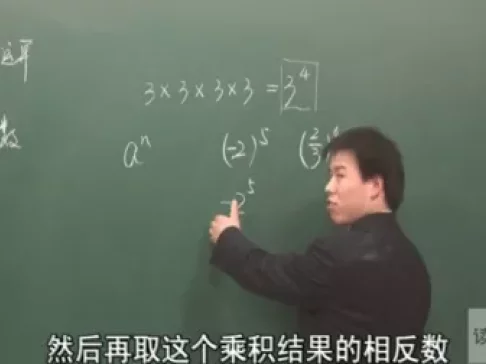 运算
3×3×3×3=3⁴
数
aⁿ (-2)⁵ (2/3)
-2⁵
然后再取这个乘积结果的相反数
读